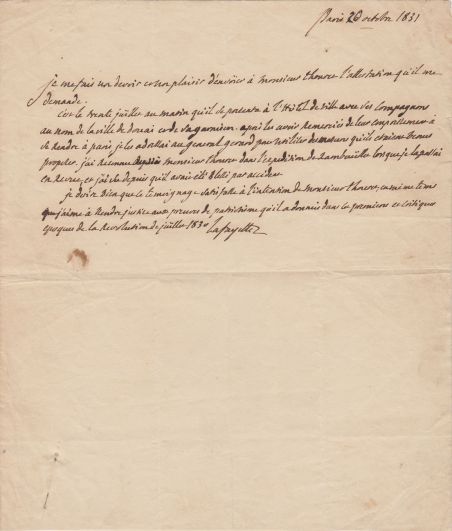 Paris 26 octobre 1831
je me fais un devoir et un plaisir d'envoier à monsieur throre l'attestation qu'il me
demande.
C'est le trente juillet au matin qu'il se presenta à l'Hôtel de Ville avec ses Compagnons
au nom de la ville de Douai et de sa garnison. après les avoir remerciés de leur empressement à
se rendre à paris, je les adressai au general gerard pour utiliser qu'ils etaient venus
proposer. j'ai reconnu monsieur throre dans l'expedition de Rambouillet lorsque je la passai
en revue, et j'ai su depuis qu'il avait été blessé par accident.
je desire bien que ce temoignage satisfasse à l'intention de monsieur throre, en même tems
que j'aime à rendre justice aux preuves de patriotisme qu'il a données dans les premieres et critiques
epoques de la Revolution de juillet 1830 Lafayette